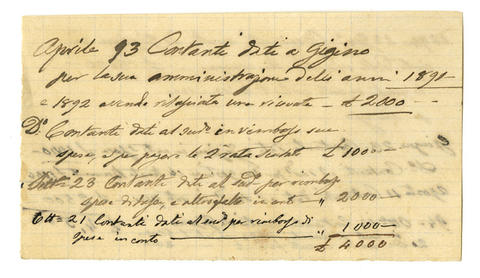 Aprile 93 Contanti dati a Gigino
per la sua amministrazione degli anni 1891
e 1892 avendo rilasciata una ricevuta £ 2000
D.º Contanti dati al sud.º in rimborso sue
spese, e per pagare la 2 rata £ 1000
23 Contanti dati al sud.º per rimborso
spese di e altro in conto " 2000
Ott= 21 Contanti dati al sud.º per rimborso di
spese in conto " 1000
£ 4000